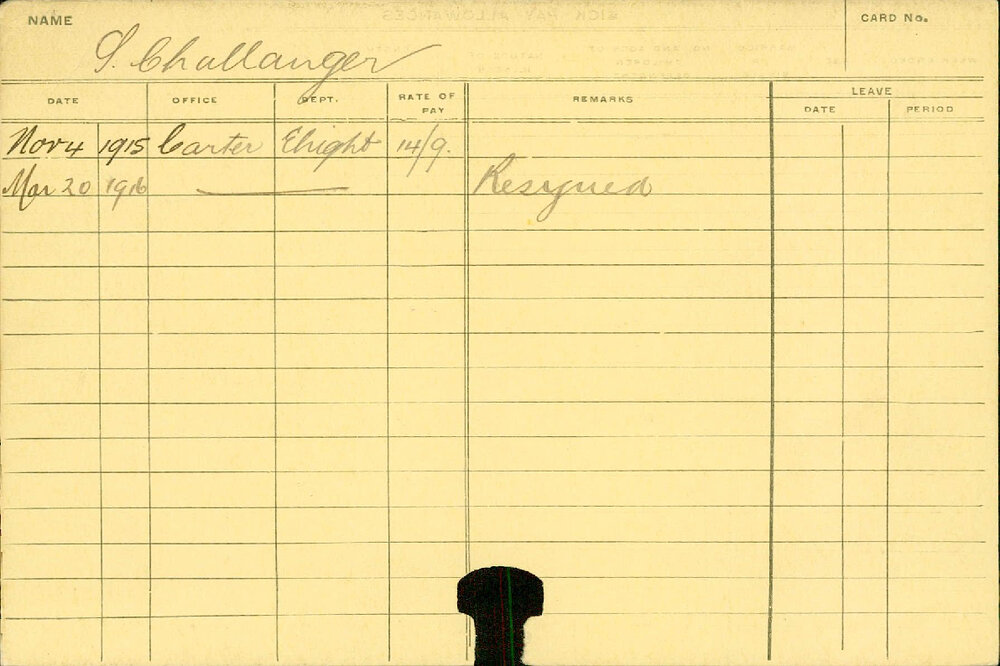 NAME
CARD No.
S. Challanger
DATE OFFICE DEPT. RATE OF PAY REMARKS LEAVE
DATE PERIOD
Nov 4 1915 Carter 14/9.
Mar 20 1916 Resigned